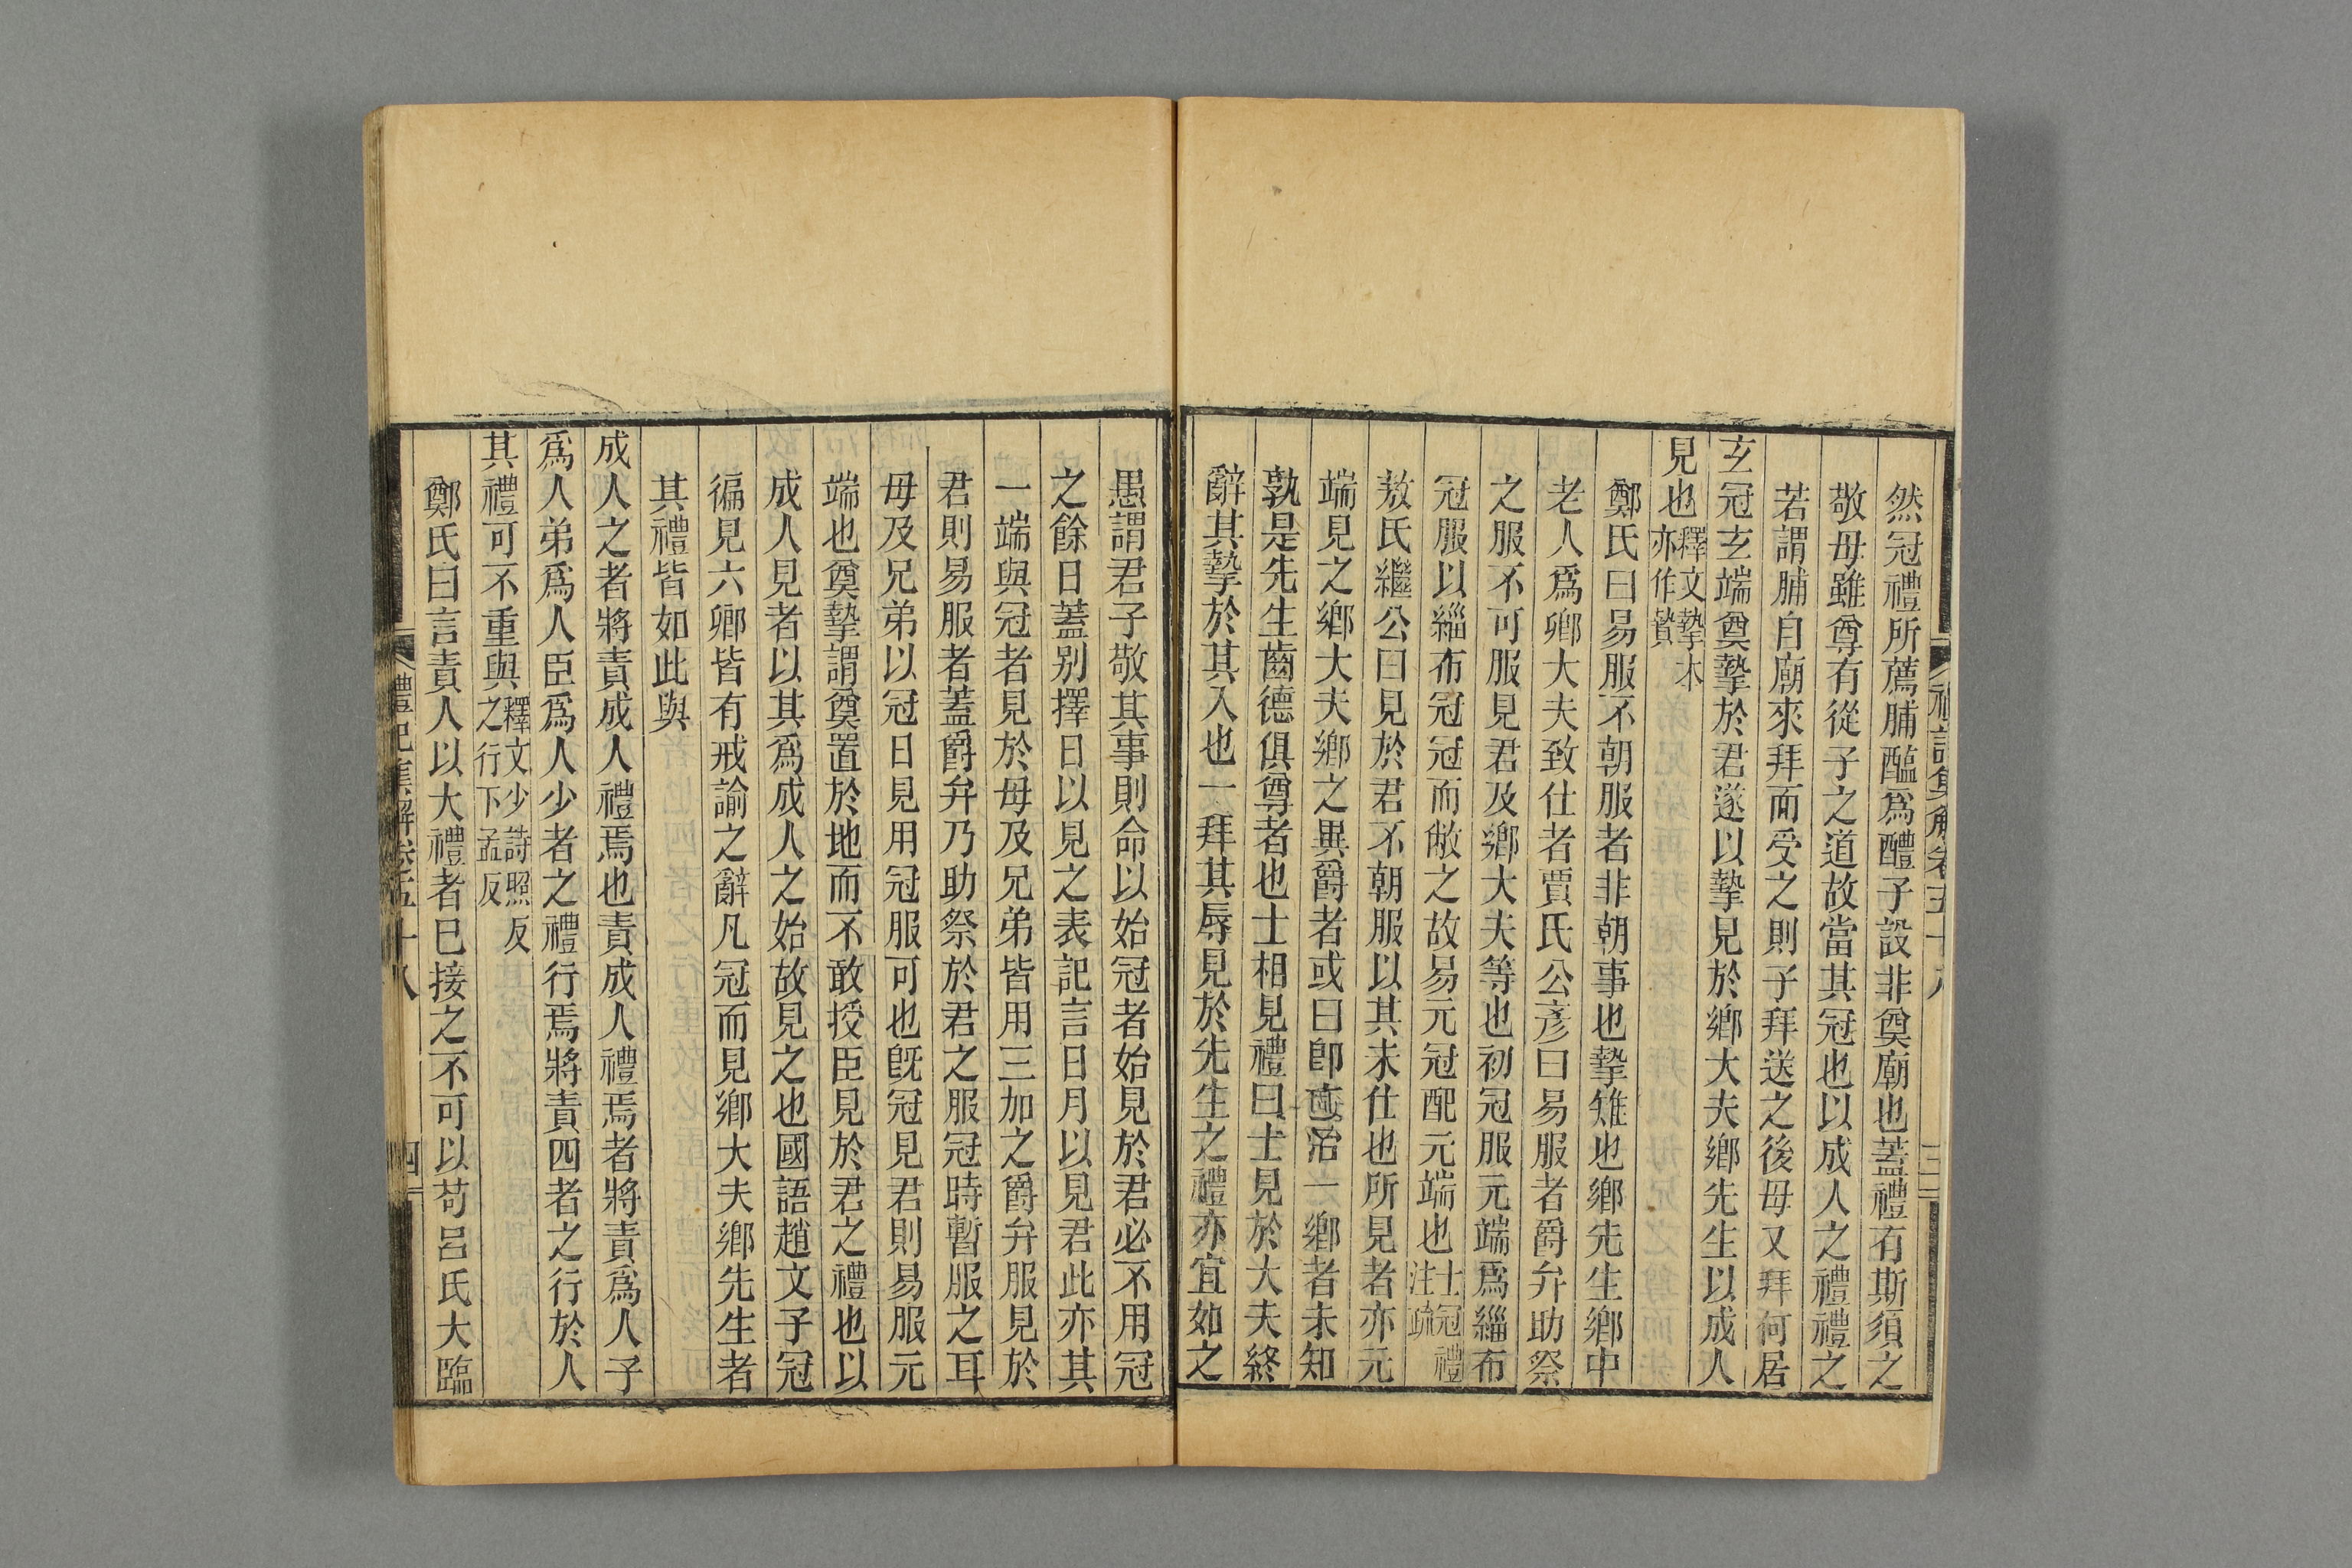 然冠禮所薦脯醢爲醴子設非奠廟也蓋禮有斯須之
敬母雖尊有從子之道故當其冠也以成人之禮禮之
若謂脯自廟來拜而受之則子拜送之後母又拜何居
玄冠玄端奠摯於君遂以摯見於鄉大夫鄉先生以成人
見也釋文摯本亦作贄
鄭氏曰易服不朝服者非朝事也摯雉也鄉先生鄉中
老人爲卿大夫致仕者賈氏公彥曰易服者爵弁助祭
之服不可服見君及鄉大夫等也初冠服元端爲緇布
冠服以緇布冠冠而敝之故易元冠配元端也士冠禮注疏
敖氏繼公曰見於君不朝服以其未仕也所見者亦元
端見之鄉大夫鄉之異爵者或曰卽治一鄉者未知
孰是先生齒德俱尊者也士相見禮曰士見於大夫終
辭其摯於其入也一拜其辱見於先生之禮亦宜如之
愚謂君子敬其事則命以始冠者始見於君必不用冠
之餘日蓋别擇日以見之表記言日月以見君此亦其
一端與冠者見於母及兄弟皆用三加之爵弁服見於
君則易服者蓋爵弁乃助祭於君之服冠時暫服之耳
母及兄弟以冠日見用冠服可也旣冠見君則易服元
端也奠摯謂奠置於地而不敢授臣見於君之禮也以
成人見者以其爲成人之始故見之也國語趙文子冠
徧見六卿皆有戒諭之辭凡冠而見鄉大夫鄉先生者
其禮皆如此與
成人之者將責成人禮焉也責成人禮焉者將責爲人子
爲人弟爲人臣爲人少者之禮行焉將責四者之行於人
其禮可不重與釋文少詩照反之行下孟反
鄭氏曰言責人以大禮者巳接之不可以苟呂氏大臨
禮記集解卷五十八
四